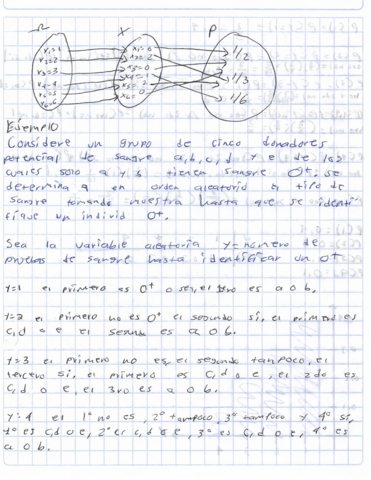 Ω X P
r₁=1 x₁=0 1/2
r₂=2 x₂=2
r₃=3 x₃=0 1/3
r₄=4 x₄=1
r₅=5 x₅=2
r₆=6 x₆=0 1/6
Ejemplo
Considere un grupo de cinco donadores
potencial de sangre a, b, c, d y e de los
cuales solo a y b tienen sangre O⁺. se
determina en orden aleatorio el tipo de
sangre tomando muestra hasta que se identi
fique un individ O⁺.
Sea la variable aleatoria y=número de
pruebas de sangre hasta identificar un O⁺
y=1 el primero es O⁺ o sea, el 1ero es a o b.
y=2 el primero no es O⁺ el segundo si, el primero es
c, d o e el segundo es a o b.
y=3 el primero no es, el segundo tampoco, el
tercero si, el primero es c, d o e, el 2do es
c, d o e, el 3ro es a o b.
y=4 el 1° no es, 2° tampoco, 3° tampoco y 4° si,
1° es c, d o e, 2° es c, d o e, 3° es c, d o e, 4° es
a o b.